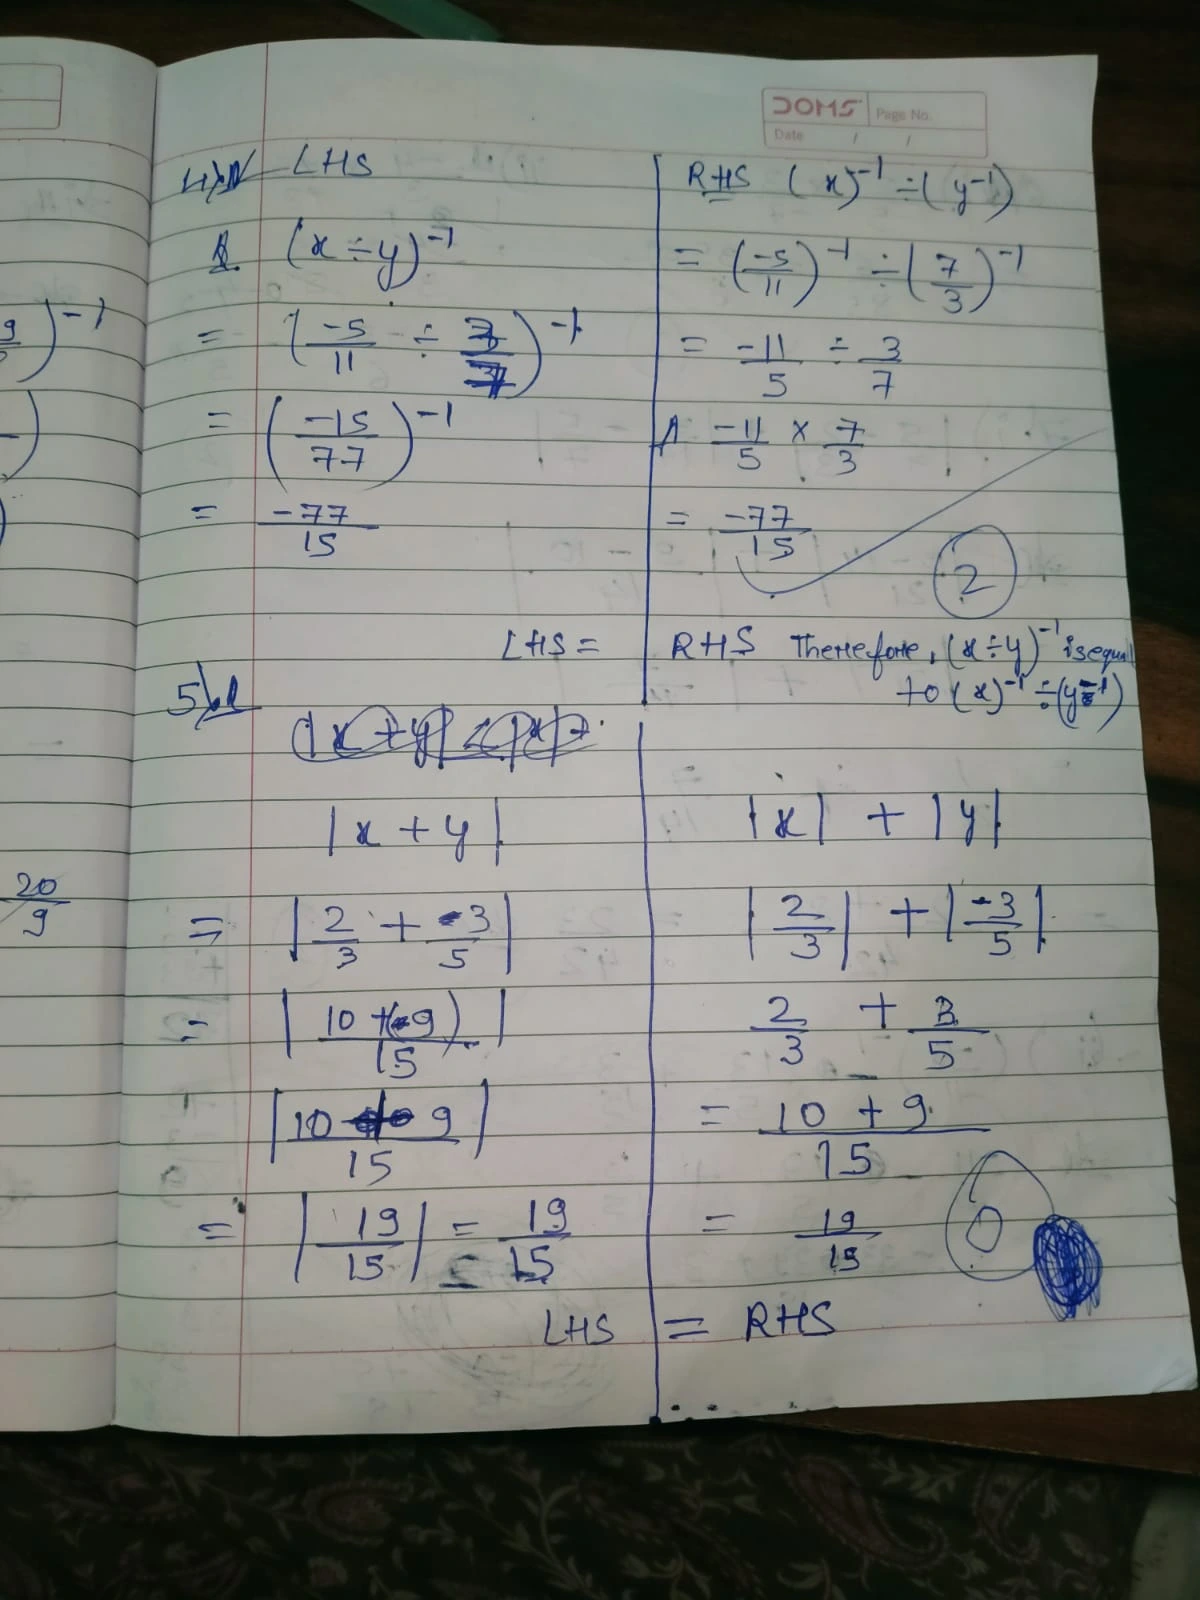 DOMS Page No.
Date / /
LHS
(x ÷ y)^-1
= (-5/11 ÷ 7/3)^-1
= (-15/77)^-1
= -77/15
RHS (x)^-1 ÷ (y^-1)
= (-5/11)^-1 ÷ (7/3)^-1
= -11/5 ÷ 3/7
-11/5 × 7/3
= -77/15
2
LHS = RHS Therefore, (x ÷ y)^-1 is equal
to (x)^-1 ÷ (y^-1)
5
|x + y|
= |2/3 + -3/5|
= |10 + (-9)/15|
|10 9/15|
= |19/15| = 19/15
|x| + |y|
|2/3| + |-3/5|
2/3 + 3/5
= 10 + 9/15
= 19/15
0
LHS = RHS
9
)^-1
20/9